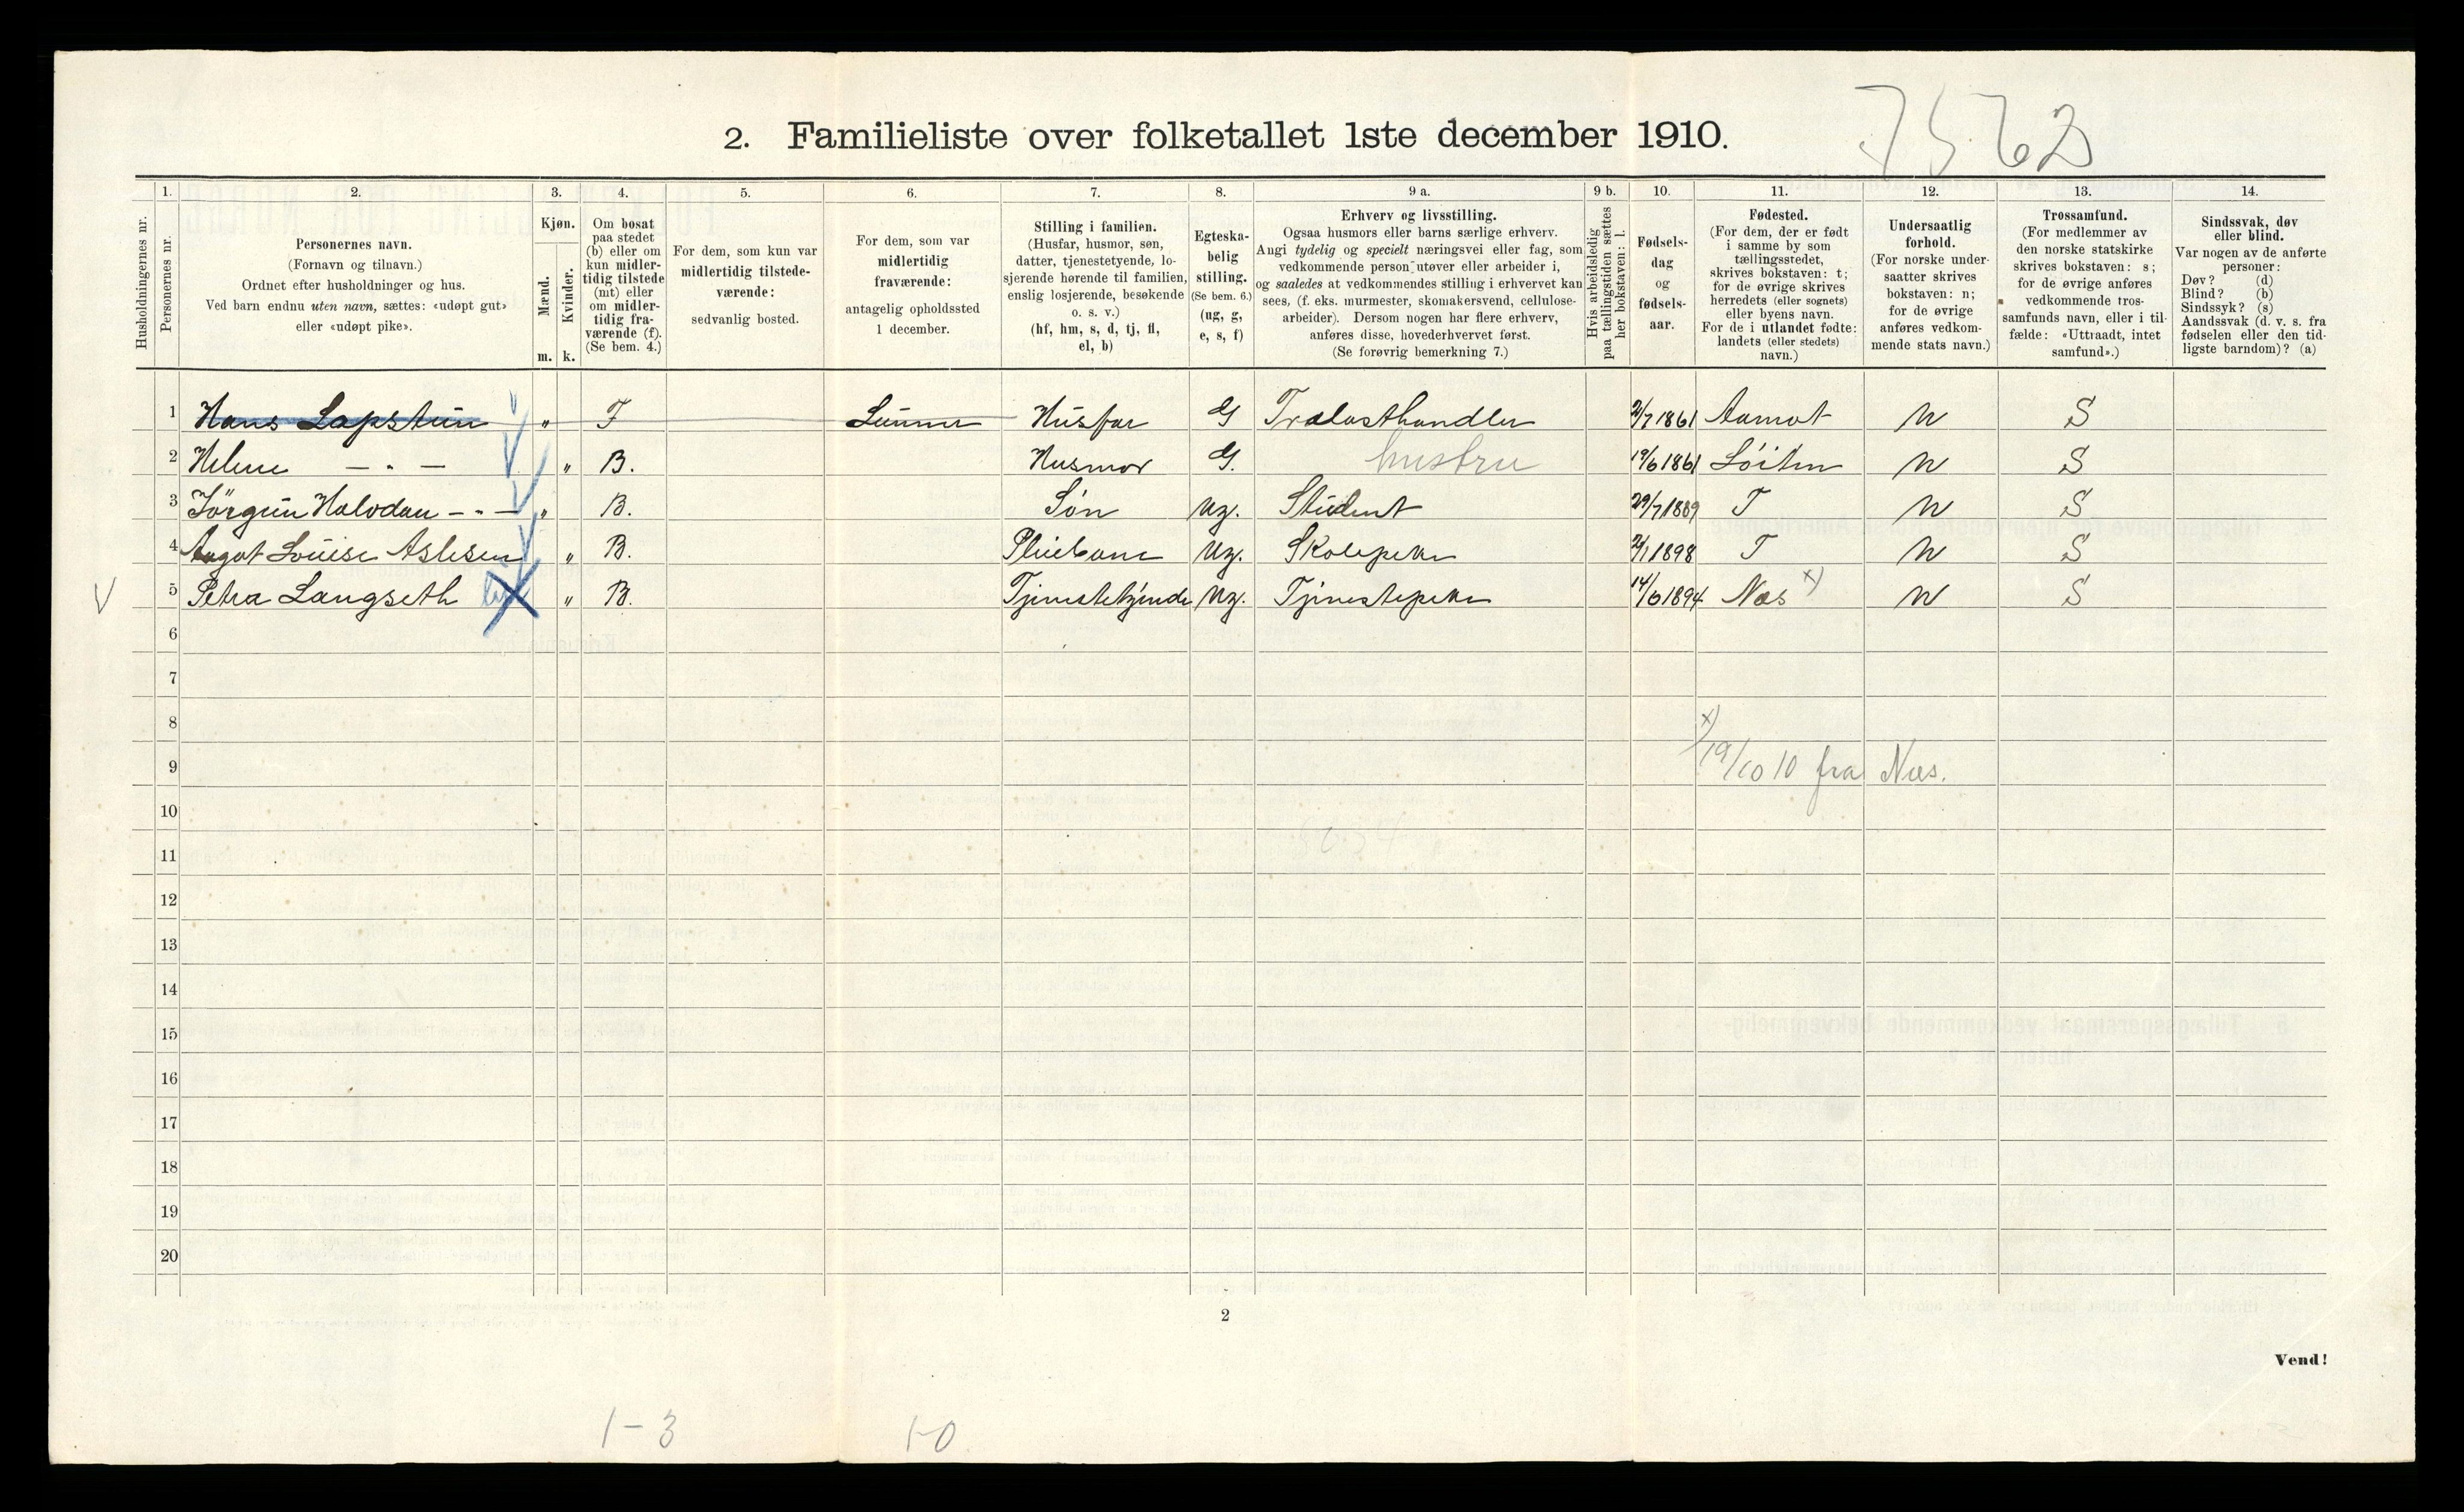 7562
2. Familieliste over folketallet 1ste december 1910.
1. 2. 3. 4. 5. 6. 7. 8. 9 a. 9 b. 10. 11. 12. 13. 14.
Husholdningernes nr.
Personernes nr.
Personernes navn.
(Fornavn og tilnavn.)
Ordnet efter husholdninger og hus.
Ved barn endnu uten navn, sættes: «udøpt gut»
eller «udøpt pike».
Kjøn.
Mænd.
Kvinder.
m. k.
Om bosat
paa stedet
(b) eller om
kun midler-
tidig tilstede
(mt) eller
om midler-
tidig fra-
værende (f).
(Se bem. 4.)
For dem, som kun var
midlertidig tilstede-
værende:
sedvanlig bosted.
For dem, som var
midlertidig
fraværende:
antagelig opholdssted
1 december.
Stilling i familien.
(Husfar, husmor, søn,
datter, tjenestetyende, lo-
sjerende hørende til familien,
enslig losjerende, besøkende
o. s. v.)
(hf, hm, s, d, tj, fl,
el, b)
Egteska-
belig
stilling.
(Se bem. 6.)
(ug, g,
e, s, f)
Erhverv og livsstilling.
Ogsaa husmors eller barns særlige erhverv.
Angi tydelig og specielt næringsvei eller fag, som
vedkommende person utøver eller arbeider i,
og saaledes at vedkommendes stilling i erhvervet kan
sees, (f. eks. murmester, skomakersvend, cellulose-
arbeider). Dersom nogen har flere erhverv,
anføres disse, hovederhvervet først.
(Se forøvrig bemerkning 7.)
Hvis arbeidsledig
paa tællingstiden sættes
her bokstaven: l.
Fødsels-
dag
og
fødsels-
aar.
Fødested.
(For dem, der er født
i samme by som
tællingsstedet,
skrives bokstaven: t;
for de øvrige skrives
herredets (eller sognets)
eller byens navn.
For de i utlandet fødte:
landets (eller stedets)
navn.)
Undersaatlig
forhold.
(For norske under-
saatter skrives
bokstaven: n;
for de øvrige
anføres vedkom-
mende stats navn.)
Trossamfund.
(For medlemmer av
den norske statskirke
skrives bokstaven: s;
for de øvrige anføres
vedkommende tros-
samfunds navn, eller i til-
fælde: «Uttraadt, intet
samfund».)
Sindssvak, døv
eller blind.
Var nogen av de anførte
personer:
Døv? (d)
Blind? (b)
Sindssyk? (s)
Aandssvak (d. v. s. fra
fødselen eller den tid-
ligste barndom)? (a)
1 Hans Lapstun " F Lunner Husfar G Trælasthandler 1861 Aamot N S
2 Helene — " — " B. Husmor G. hustru 19/6 1861 Löiten N S
3 Jörgen Halvdan - " - " B. Søn Ug. Student 29/7 1889 T N S
4 Aagot Louise Aslesen " B. Pleiebarn Ug. Skolepike 1898 T N S
5 Petra Langseth " B. Tjenestetyende Ug. Tjenestepike 14/6 1894 Næs x) N S
6
7
8
x)
9 19/10 10 fra Næs.
10
11
12
13
14
15
16
17
18
19
20
2
Vend!
1-3 1-0